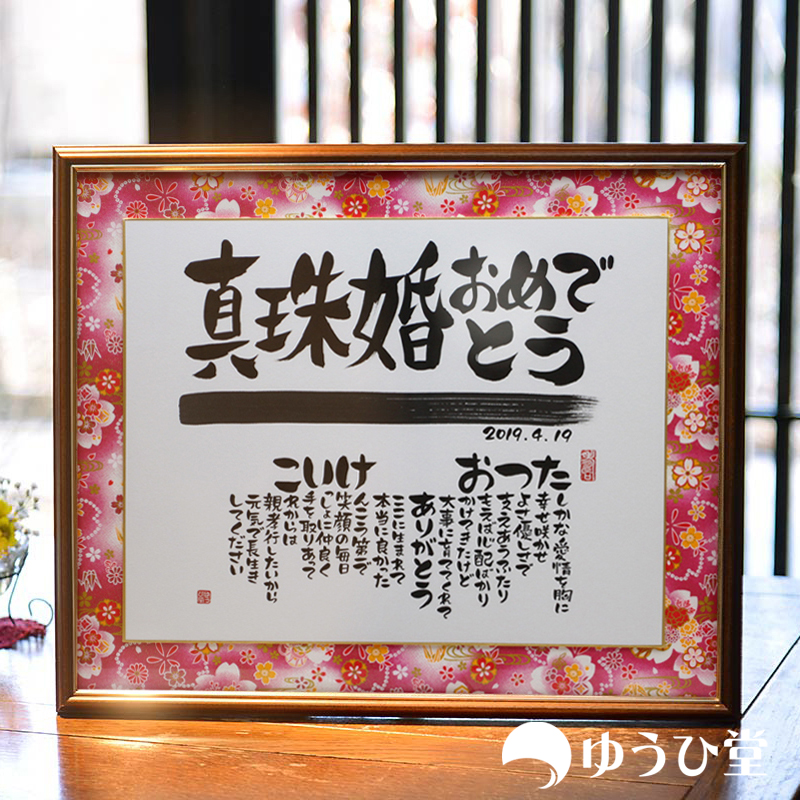 真珠婚おめで
とう
2019.4.19
たしかな愛情を胸に
幸せ咲かせ
つよさ優しさで
支えあうふたり
おもえば心配ばかり
かけてきたけど
大事に育ててくれて
ありがとう
ここに生まれて
本当に良かった
けんこう第一で
笑顔の毎日
いっしょに仲良く
手を取りあって
これからは
親孝行したいから
元気で長生き
してください
ゆうひ堂